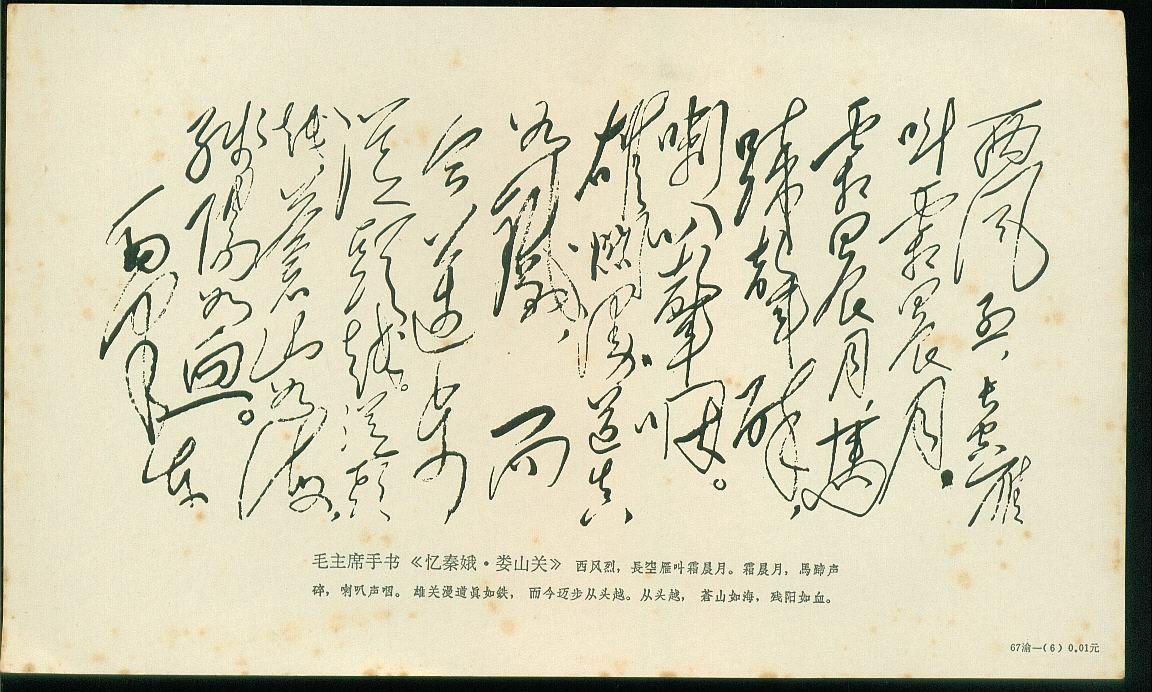 西風烈，长空雁
叫霜晨月。
霜晨月，馬
蹄聲碎，
喇叭聲咽。
雄關漫道真
如鐵，而
今邁步
從頭越。從頭
越，蒼山如海，
殘陽如血。
毛主席手书《忆秦娥·娄山关》 西风烈，長空雁叫霜晨月。霜晨月，馬蹄声
碎，喇叭声咽。雄关漫道眞如鉄，而今迈步从头越。从头越，蒼山如海，残阳如血。
67渝—(6) 0.01元